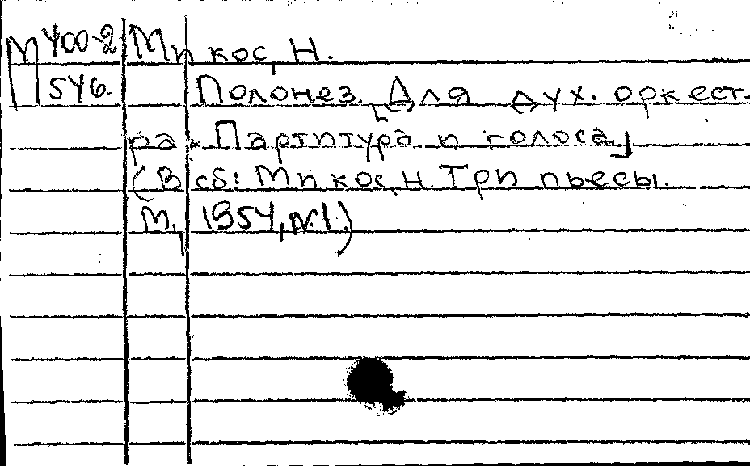 М 400-2 Микос, Н.
П 546. Полонез. [Для дух. оркест-
ра. Партитура и голоса]
(В сб: Микос, Н Три пьесы.
М, 1954, №1.)